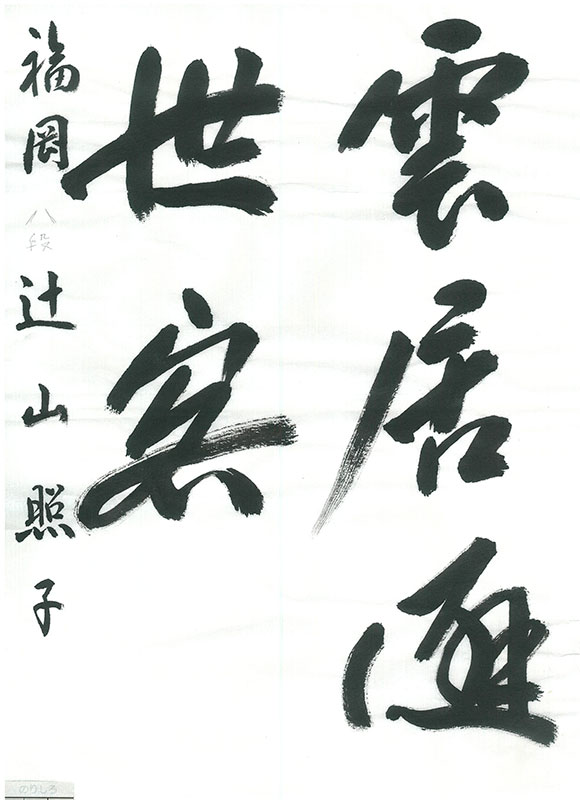 雲居避
世客
福岡 八段 辻山照子
のりしろ